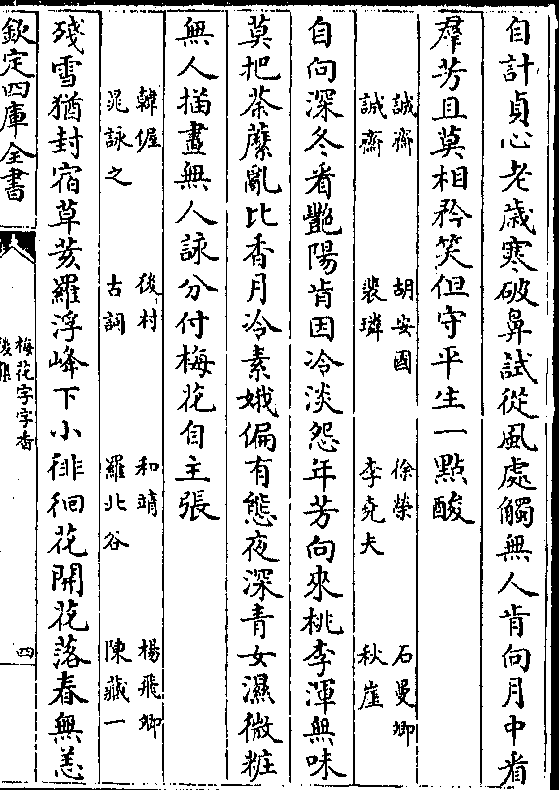 自計貞心老歳寒破鼻試從風處觸無人肯向月中㸔
羣芳且莫相矜笑但守平生一㸃酸
誠齋　胡安國　徐榮　石曼卿
誠齋　裴璘　李堯夫　秋崖
自向深冬看艷陽肯因冷淡怨年芳向來桃李渾無味
莫把荼䕷亂比香月冷素娥偏有態夜深青女濕微粧
無人描畫無人詠分付梅花自主張
韓偓　後村　和靖　楊飛卿
晁詠之　古詞　羅北谷　陳藏一
殘雪猶封宿草荄羅浮峰下小徘徊花開花落春無恙
欽定四庫全書
梅花字字香
後集
四